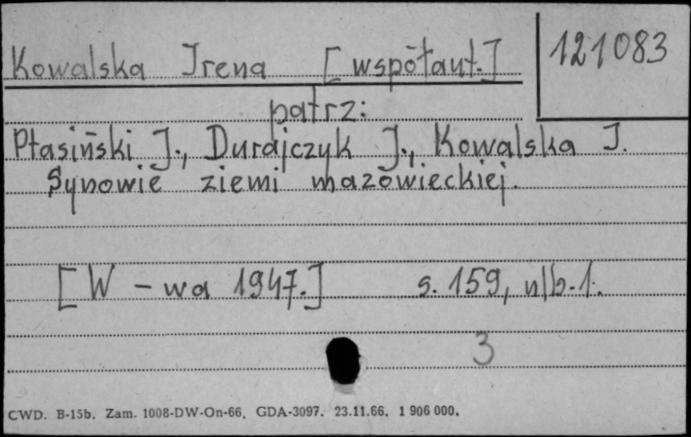 Kowalska Irena [współaut.]
121083
patrz:
Ptasiński J., Durajczyk J., Kowalska I.
Synowie ziemi mazowieckiej.
[W-wa 1947.] s. 159, nlb. 1.
3
CWD. B-15b. Zam. 1008-DW-On-66. GDA-3097. 23.11.66. 1 906 000.